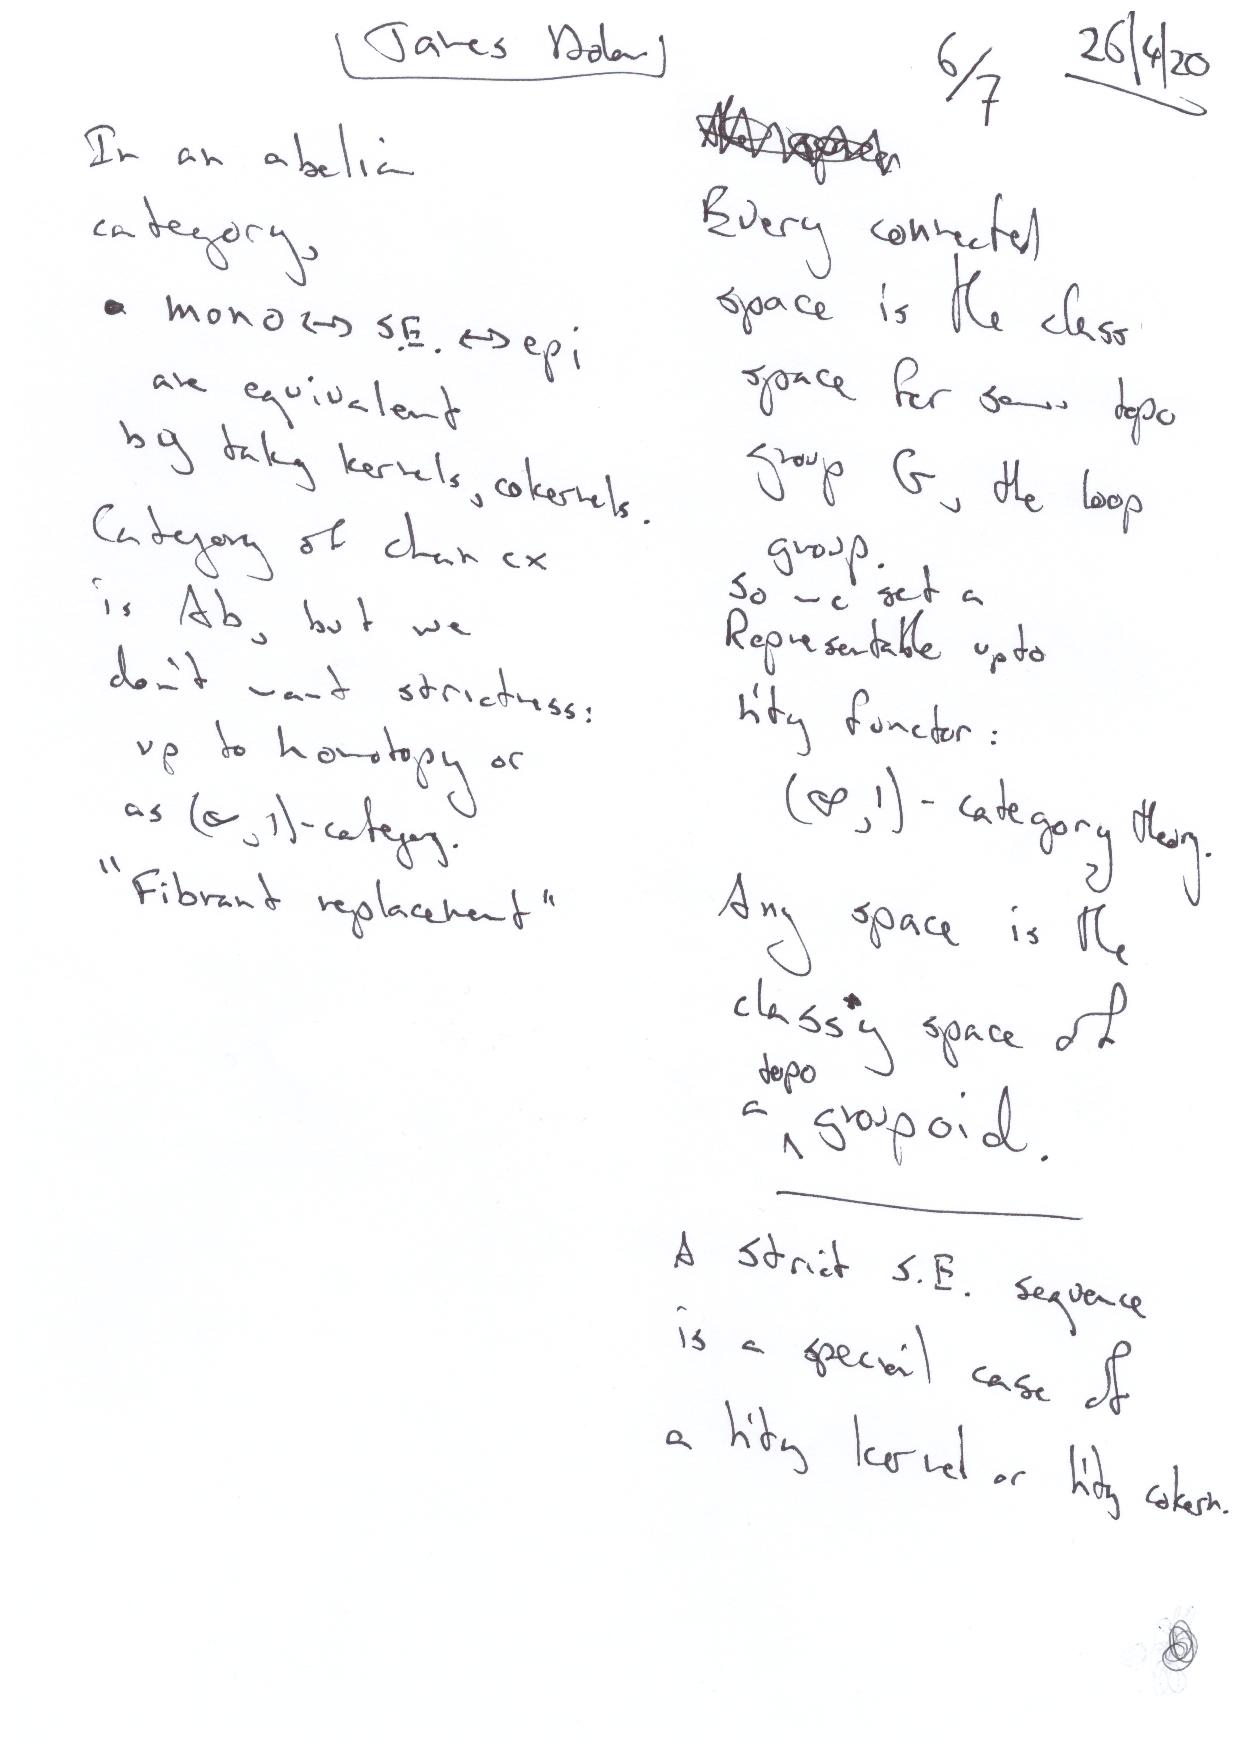 James Dolan
6/7 26/4/20
In an abelian
category,
• mono ↔ S.E. ↔ epi
are equivalent
by taky kernels, cokernels.
Category of chain cx
is Ab, but we
don't want strictness:
up to homotopy or
as (∞,1)-category.
"Fibrant replacement"
Every connected
space is the class
space for some topo
group G, the loop
group.
So we get a
Representable up to
h'ty functor:
(∞,1)-category theory.
Any space is the
class'y space of
topo
a ∧ groupoid.
A strict S.E. sequence
is a special case of
a h'ty kernel or h'ty cokern.